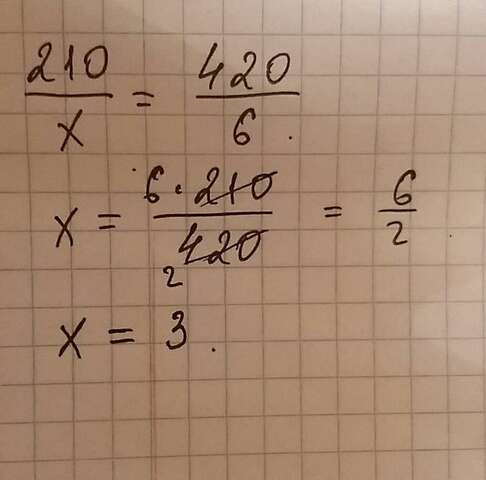 210/x = 420/6.
x = 6·210/420 2 = 6/2.
x = 3.